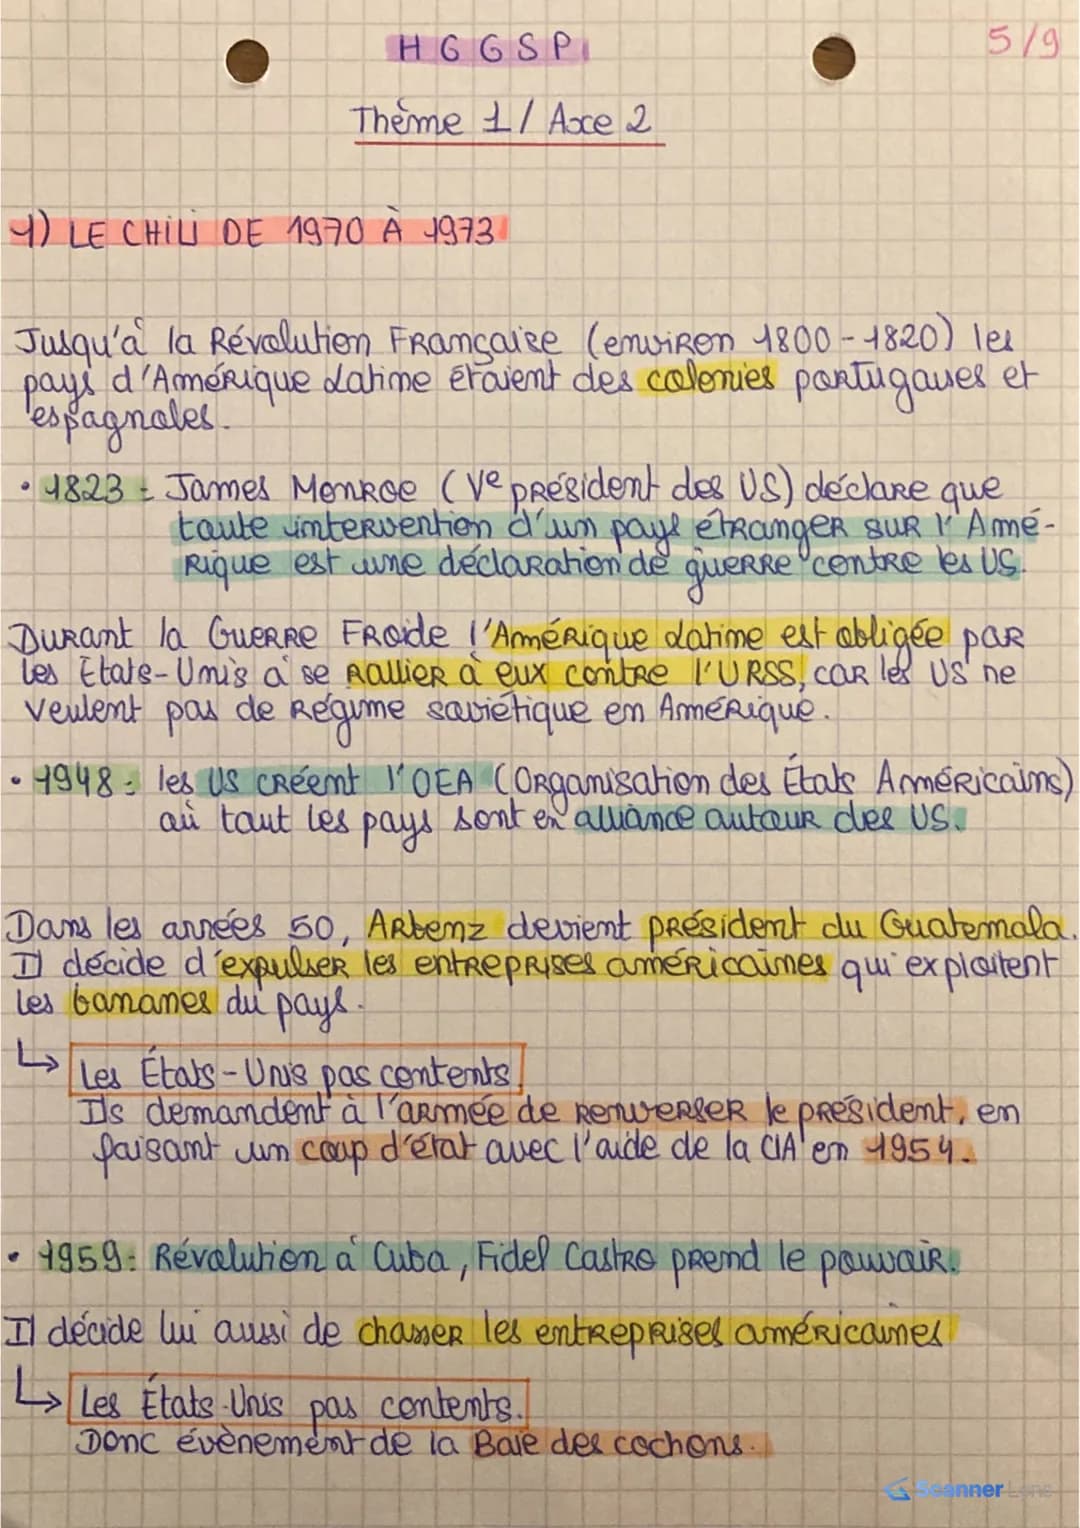 HGGSP
5/9
Thème 1/ Axe 2
1) LE CHILI DE 1970 À 1973
Jusqu'à la Révolution Française (environ 1800-1820) les
pays d'Amérique Latine étaient des colonies portugaises et
espagnoles.
• 1823 : James Monroe (Ve président des US) déclare que
toute intervention d'un pays étranger sur l'Amé-
rique est une déclaration de guerre contre les US.
Durant la Guerre Froide l'Amérique latine est obligée par
les Etats-Unis à se rallier à eux contre l'URSS, car les US ne
veulent pas de régime soviétique en Amérique.
• 1948 : les US créent l'OEA (Organisation des États Américains)
où tout les pays sont en alliance autour des US.
Dans les années 50, Arbenz devient président du Guatemala.
Il décide d'expulser les entreprises américaines qui exploitent
les bananes du pays.
↳ Les États-Unis pas contents.
Ils demandent à l'armée de renverser le président, en
faisant un coup d'état avec l'aide de la CIA en 1954.
• 1959 : Révolution à Cuba, Fidel Castro prend le pouvoir.
Il décide lui aussi de chasser les entreprises américaines
↳ Les États-Unis pas contents.
Donc évènement de la Baie des cochons.
Scanner Lens